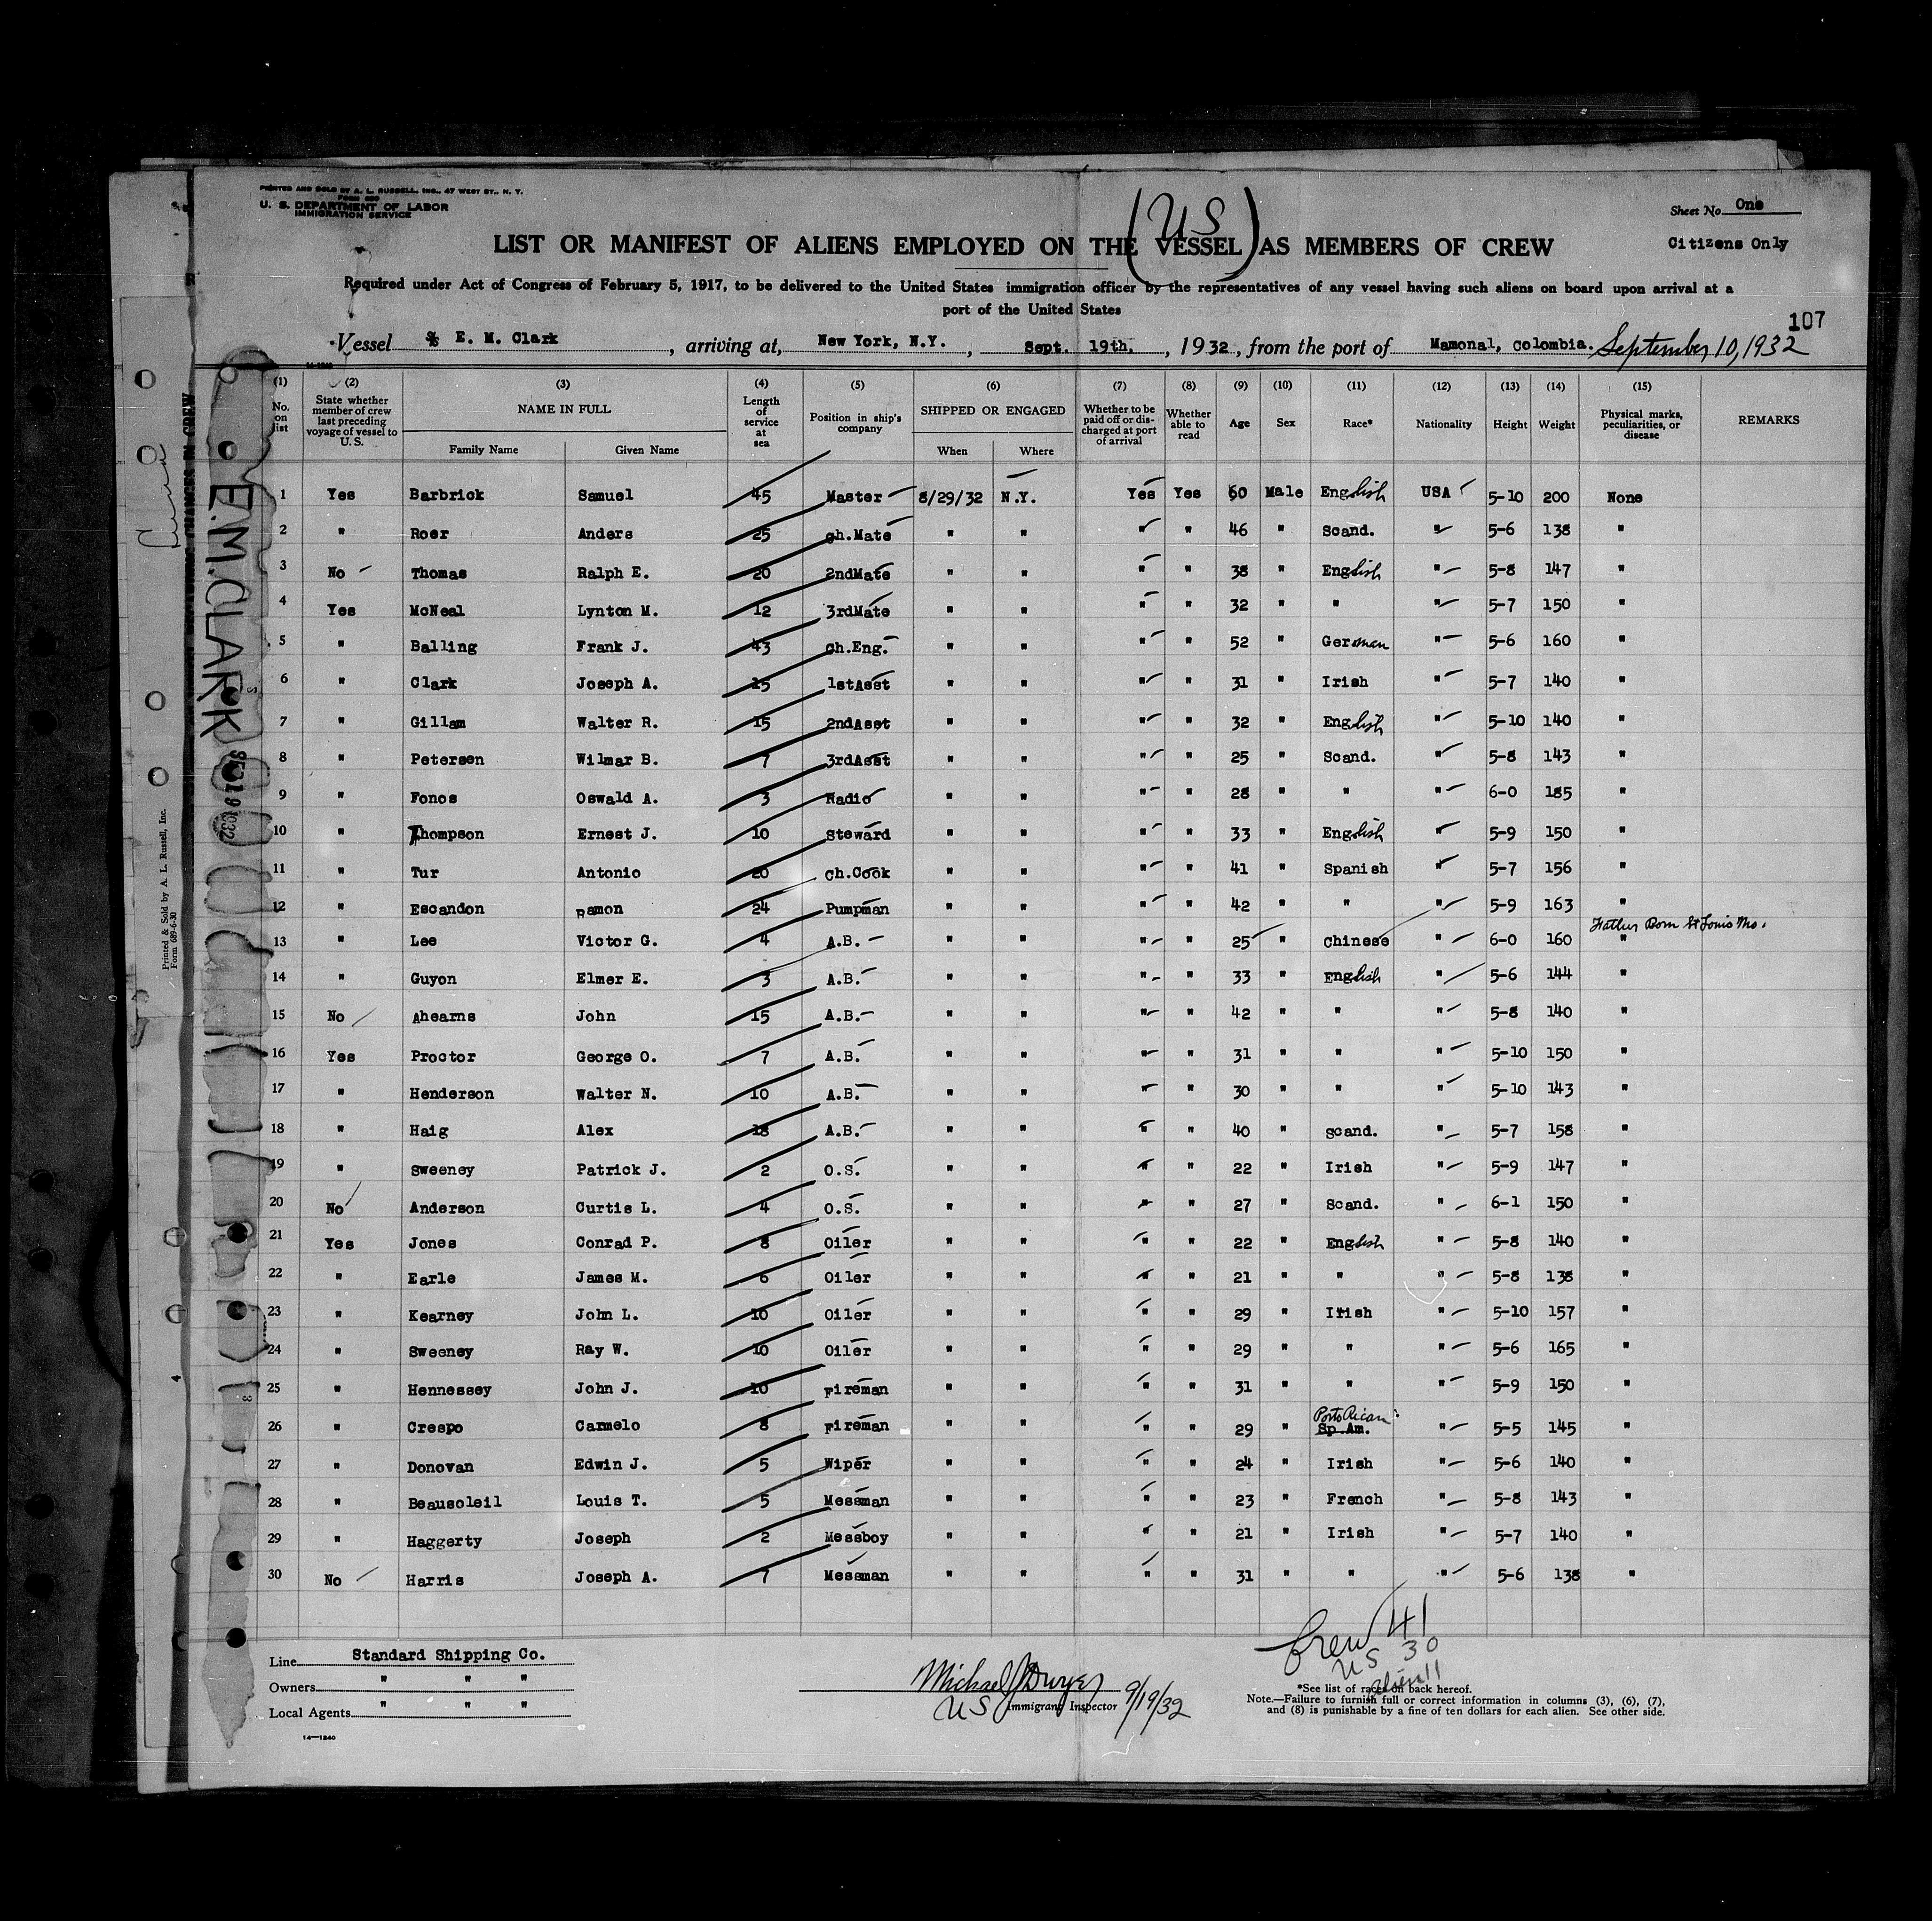 PRINTED AND SOLD BY A. L. RUSSELL, INC., 47 WEST ST., N. Y.
FORM 689
U. S. DEPARTMENT OF LABOR
IMMIGRATION SERVICE
(US)
Sheet No. One
Citizens Only
LIST OR MANIFEST OF ALIENS EMPLOYED ON THE VESSEL AS MEMBERS OF CREW
Required under Act of Congress of February 5, 1917, to be delivered to the United States immigration officer by the representatives of any vessel having such aliens on board upon arrival at a
port of the United States
107
Vessel S/S E. M. Clark, arriving at, New York, N.Y., Sept. 19th, 1932, from the port of Mamonal, Colombia. September 10, 1932
(1) No. on list (2) State whether member of crew last preceding voyage of vessel to U. S. (3) NAME IN FULL Family Name Given Name (4) Length of service at sea (5) Position in ship's company (6) SHIPPED OR ENGAGED When Where (7) Whether to be paid off or discharged at port of arrival (8) Whether able to read (9) Age (10) Sex (11) Race* (12) Nationality (13) Height (14) Weight (15) Physical marks, peculiarities, or disease REMARKS
1 Yes Barbrick Samuel 45 Master 8/29/32 N.Y. Yes Yes 60 Male English USA 5-10 200 None
2 " Roer Anders 25 Ch.Mate " " " " 46 " Scand. " 5-6 138 "
3 No Thomas Ralph E. 20 2ndMate " " " " 38 " English " 5-8 147 "
4 Yes McNeal Lynton M. 12 3rdMate " " " " 32 " " " 5-7 150 "
5 " Balling Frank J. 43 Ch.Eng. " " " " 52 " German " 5-6 160 "
6 " Clark Joseph A. 15 1stAsst " " " " 31 " Irish " 5-7 140 "
7 " Gillam Walter R. 15 2ndAsst " " " " 32 " English " 5-10 140 "
8 " Petersen Wilmar B. 7 3rdAsst " " " " 25 " Scand. " 5-8 143 "
9 " Fonos Oswald A. 3 Radio " " " " 28 " " " 6-0 185 "
10 " Thompson Ernest J. 10 Steward " " " " 33 " English " 5-9 150 "
11 " Tur Antonio 20 Ch.Cook " " " " 41 " Spanish " 5-7 156 "
12 " Escandon Ramon 24 Pumpman " " " " 42 " " " 5-9 163 "
Father Born St Louis Mo.
13 " Lee Victor G. 4 A.B. " " " " 25 " Chinese " 6-0 160 "
14 " Guyon Elmer E. 3 A.B. " " " " 33 " English " 5-6 144 "
15 No Ahearns John 15 A.B. " " " " 42 " " " 5-8 140 "
16 Yes Proctor George O. 7 A.B. " " " " 31 " " " 5-10 150 "
17 " Henderson Walter N. 10 A.B. " " " " 30 " " " 5-10 143 "
18 " Haig Alex 18 A.B. " " " " 40 " Scand. " 5-7 158 "
19 " Sweeney Patrick J. 2 O.S. " " " " 22 " Irish " 5-9 147 "
20 No Anderson Curtis L. 4 O.S. " " " " 27 " Scand. " 6-1 150 "
21 Yes Jones Conrad P. 8 Oiler " " " " 22 " English " 5-8 140 "
22 " Earle James M. 6 Oiler " " " " 21 " " " 5-8 138 "
23 " Kearney John L. 10 Oiler " " " " 29 " Irish " 5-10 157 "
24 " Sweeney Ray W. 10 Oiler " " " " 29 " " " 5-6 165 "
25 " Hennessey John J. 10 Fireman " " " " 31 " " " 5-9 150 "
Porto Rican
26 " Crespo Carmelo 8 Fireman " " " " 29 " Sp.Am. " 5-5 145 "
27 " Donovan Edwin J. 5 Wiper " " " " 24 " Irish " 5-6 140 "
28 " Beausoleil Louis T. 5 Messman " " " " 23 " French " 5-8 143 "
29 " Haggerty Joseph 2 Messboy " " " " 21 " Irish " 5-7 140 "
30 No Harris Joseph A. 7 Messman " " " " 31 " " " 5-6 138 "
Crew 41
US 30
alien 11
Line Standard Shipping Co.
Owners " " "
Local Agents " " "
14—1240
Michael J Dwyer
US Immigrant Inspector 9/19/32
*See list of races on back hereof.
Note.—Failure to furnish full or correct information in columns (3), (6), (7),
and (8) is punishable by a fine of ten dollars for each alien. See other side.
E.M. CLARK
Printed & Sold by A. L. Russell, Inc.
Form 689-6-30